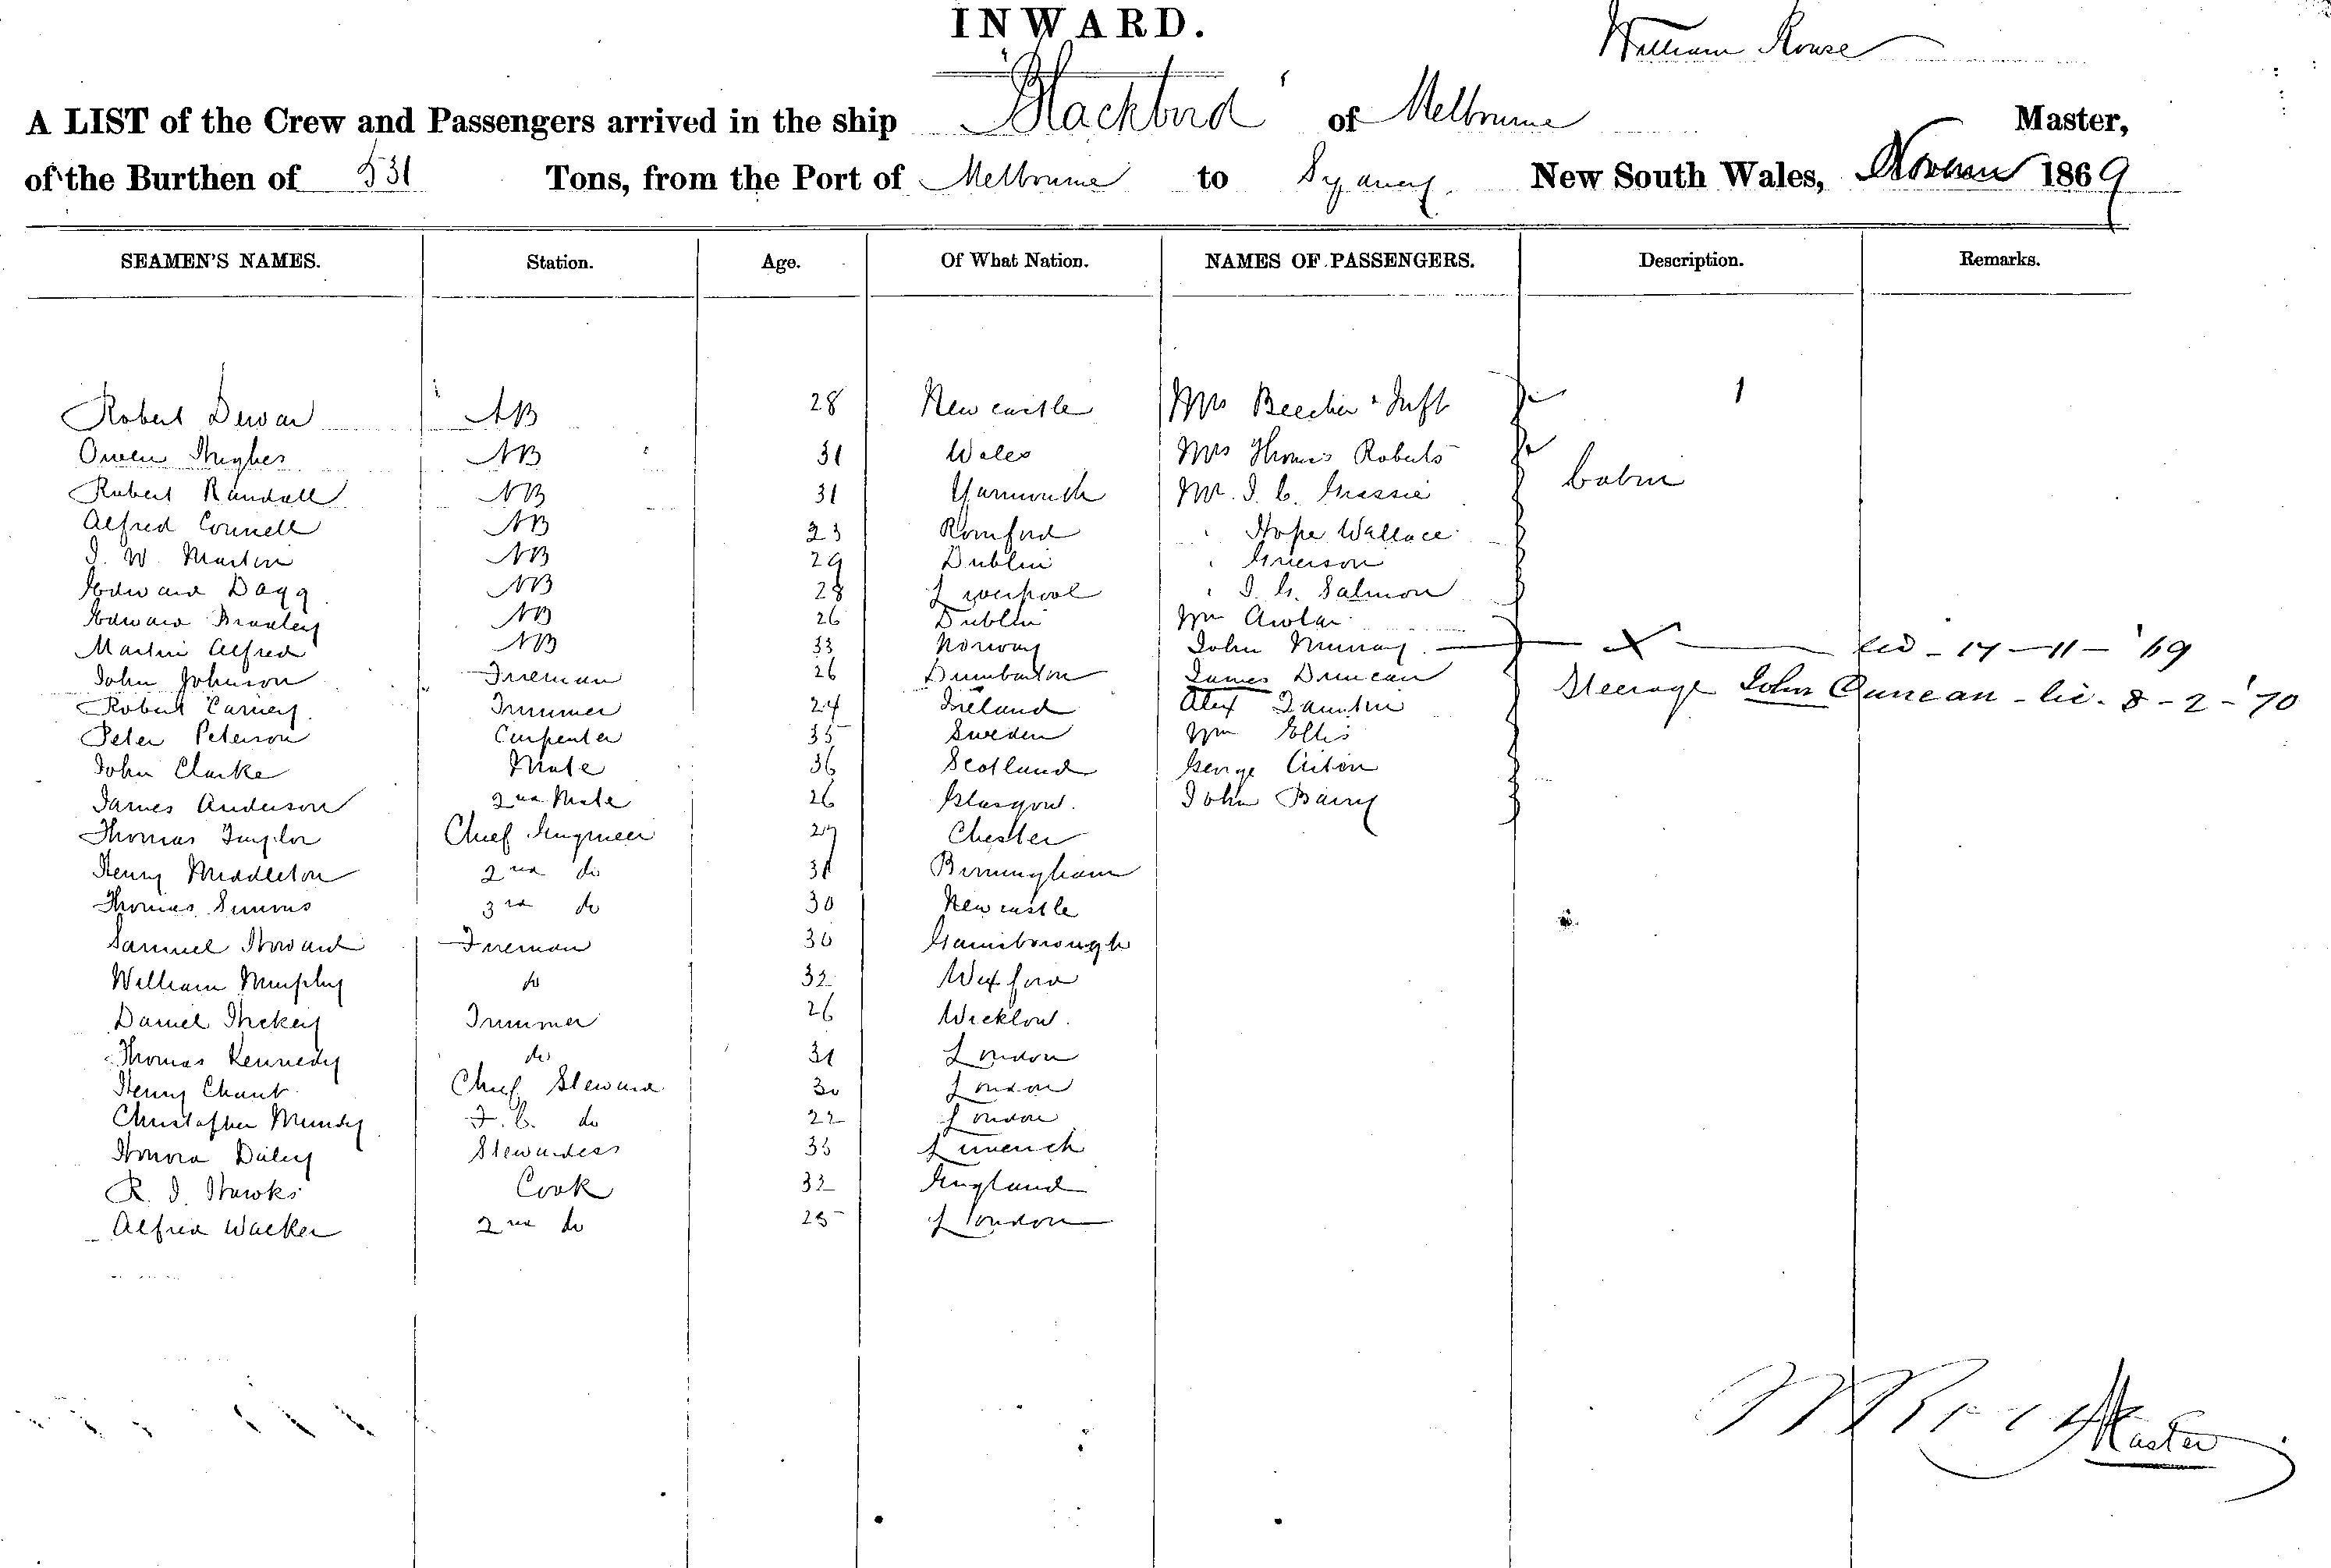 INWARD.
William Rouse
A LIST of the Crew and Passengers arrived in the ship "Blackbird" of Melbourne Master,
of the Burthen of 531 Tons, from the Port of Melbourne to Sydney. New South Wales, 1869
SEAMEN'S NAMES. Station. Age. Of What Nation. NAMES OF PASSENGERS. Description. Remarks.
Robert Dewar AB 28 Newcastle Mrs Beecher & Inft 1
Owen Hughes AB 31 Wales Mrs Thomas Roberts
Robert Randall AB 31 Yarmouth Mr. J. C. Grassie Cabin
Alfred Connell AB 23 Romford " Hope Wallace
J. W. Martin AB 29 Dublin " Grierson
Edward Dagg AB 28 Liverpool " J. G. Salmon
Edward Bradley AB 26 Dublin Wm
Martin Alfred AB 33 Norway John Murray X lic - 17 - 11 - '69
John Johnson Fireman 26 Dumbarton James Duncan Steerage John Duncan - lic. 8 - 2 - '70
Robert Carney Trimmer 24 Ireland Alex
Peter Peterson Carpenter 35 Sweden Wm Ellis
John Clarke Mate 36 Scotland George
James Anderson 2nd Mate 26 Glasgow. John Barry
Thomas Taylor Chief Engineer 27 Chester
Henry Middleton 2nd do 31 Birmingham
Thomas Simms 3rd do 30 Newcastle
Samuel Howard Fireman 30 Gainsborough
William Murphy do 32 Wexford
Daniel Hickey Trimmer 26 Wicklow.
Thomas Kennedy do 31 London
Henry Chant Chief Steward 30 London
Christopher Munday F. C. do 22 London
Honora Daley Stewardess 35 Limerick
R. J. Hawks Cook 32 England
Alfred Walker 2nd do 25 London
Master